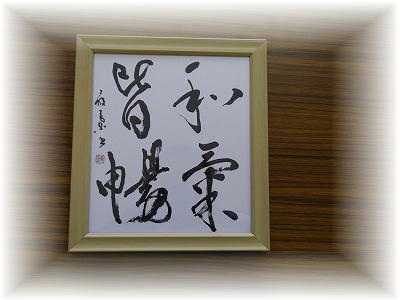 和氣
皆暢